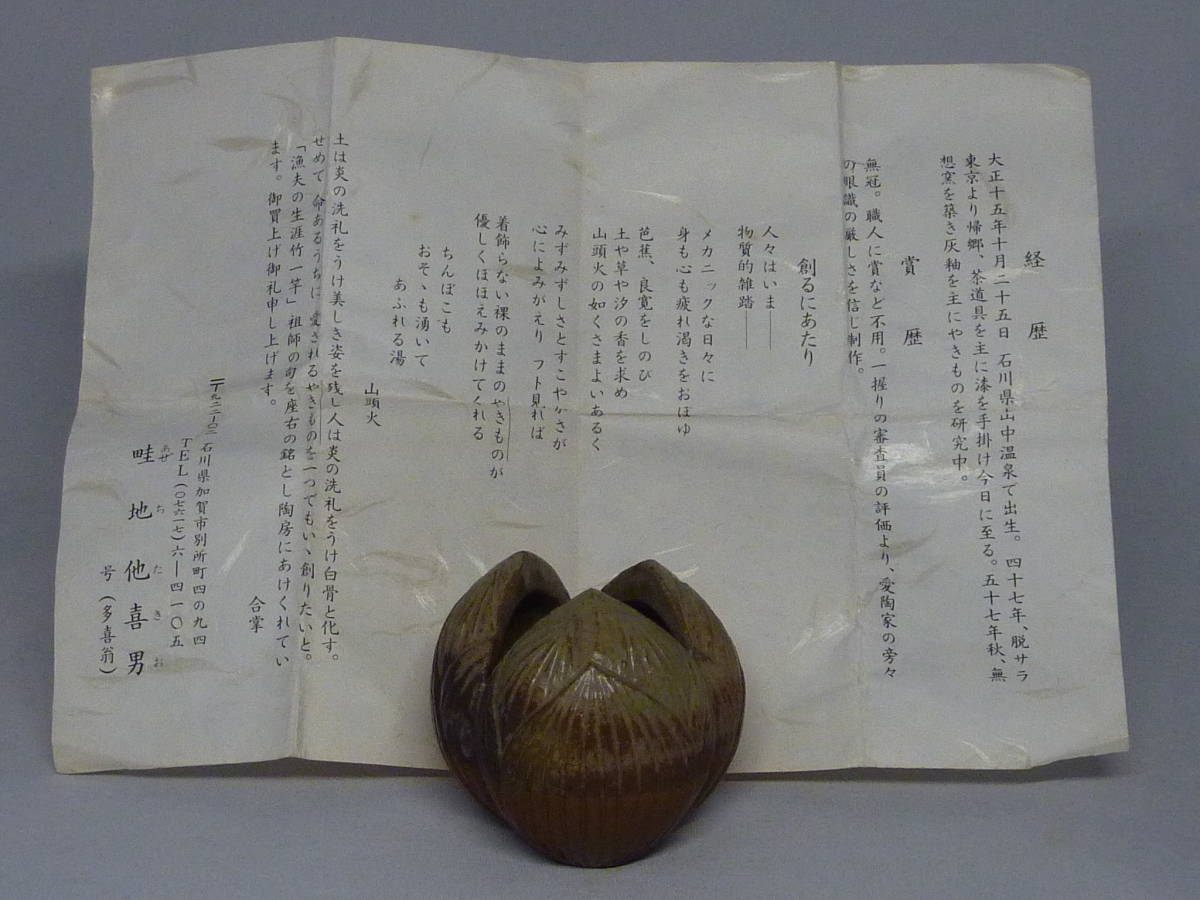 経歴
大正十五年十月二十五日 石川県山中温泉で出生。四十七年、脱サラ
東京より帰郷、茶道具を主に漆を手掛け今日に至る。五十七年秋、無
想窯を築き灰釉を主にやきものを研究中。
賞歴
無冠。職人に賞など不用。一握りの審査員の評価より、愛陶家の旁々
の眼識の厳しさを信じ制作。
創るにあたり
人々はいま――
物質的雑踏――
メカニックな日々に
身も心も疲れ渇きをおぼゆ
芭蕉、良寛をしのび
土や草や汐の香を求め
山頭火の如くさまよいあるく
みずみずしさとすこやかさが
心によみがえり フト見れば
着飾らない裸のままのやきものが
優しくほほえみかけてくれる
ちんぽこも
おそゝも湧いて
あふれる湯
山頭火
土は炎の洗礼をうけ美しき姿を残し人は炎の洗礼をうけ白骨と化す。
せめて命あるうちに愛されるやきものを一つでもいゝ創りたいと。
「漁夫の生涯竹一竿」祖師の句を座右の銘とし陶房にあけくれてい
ます。御買上げ御礼申し上げます。
合掌
〒九二二-〇三 石川県加賀市別所町四の九四
TEL(〇七六一七)六―四一〇五
畦地他喜男
あぜちたきお
号(多喜翁)